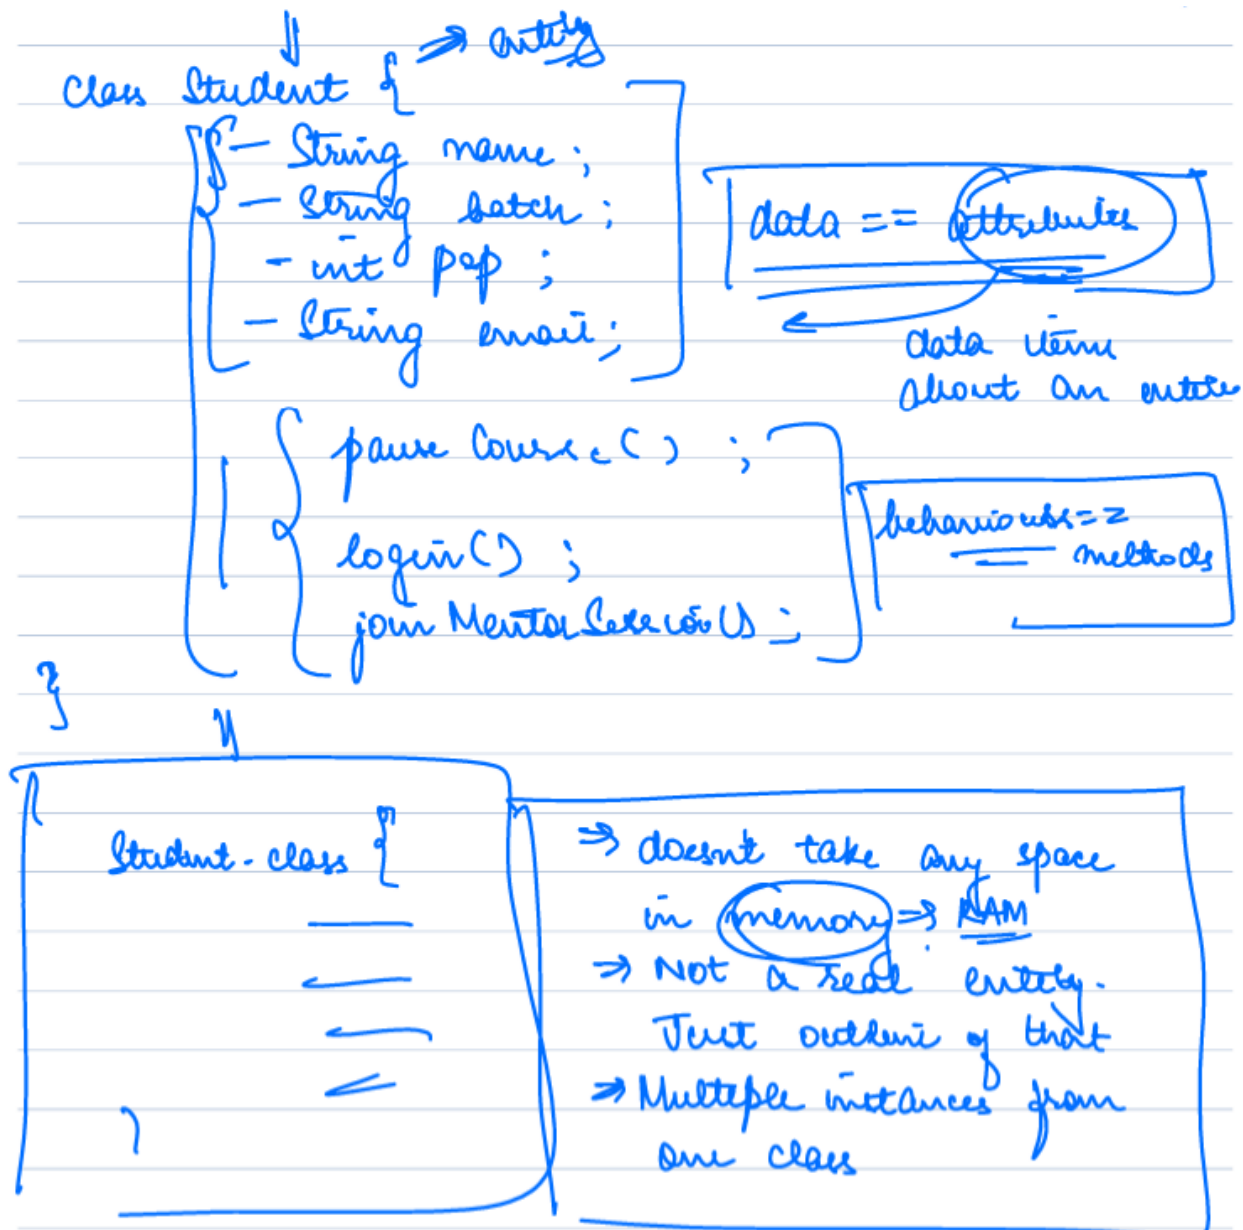 class Student { ⇒ entity
- String name;
- String batch;
- int psp;
- String email;
data == attributes
data item
about an entity
pauseCourse();
login();
joinMentorSession();
behaviours==
methods
}
Student-class {
⇒ doesn't take any space
in memory ⇒ RAM
⇒ Not a real entity.
Just outline of that
⇒ Multiple instances from
one class
}